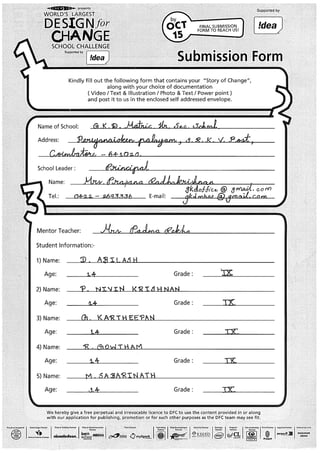 presents
WORLD'S LARGEST
DESIGN for
CHANGE
SCHOOL CHALLENGE
Supported by !dea
by OCT 15
FINAL SUBMISSION FORM TO REACH US!
Supported by
!dea
Submission Form
1
Kindly fill out the following form that contains your "Story of Change",
along with your choice of documentation
( Video / Text & Illustration / Photo & Text / Power point )
and post it to us in the enclosed self addressed envelope.
2
Name of School: G.K.D. Matric Hr. Sec School
Address: Periyanaicken palayam, S.R.K.V. Post,
Coimbatore - 641020.
School Leader : Principal
Name: Mrs. Prajana Radhakrishnan
gkdoffice@gmail.com
Tel.: 0422 - 2693336 E-mail: gkdmhss@gmail.com
3
Mentor Teacher: Mrs Padma Rekha
Student Information:-
1) Name: D. ABILASH
Age: 14 Grade : IX
2) Name: P. NIVIN KRISHNAN
Age: 14 Grade : IX
3) Name: G. KARTHEEPAN
Age: 14 Grade : IX
4) Name: R. GOWTHAM
Age: 14 Grade : IX
5) Name: M. SABARINATH
Age: 14 Grade : IX
We hereby give a free perpetual and irrevocable licence to DFC to use the content provided in or along
with our application for publishing, promotion or for such other purposes as the DFC team may see fit.